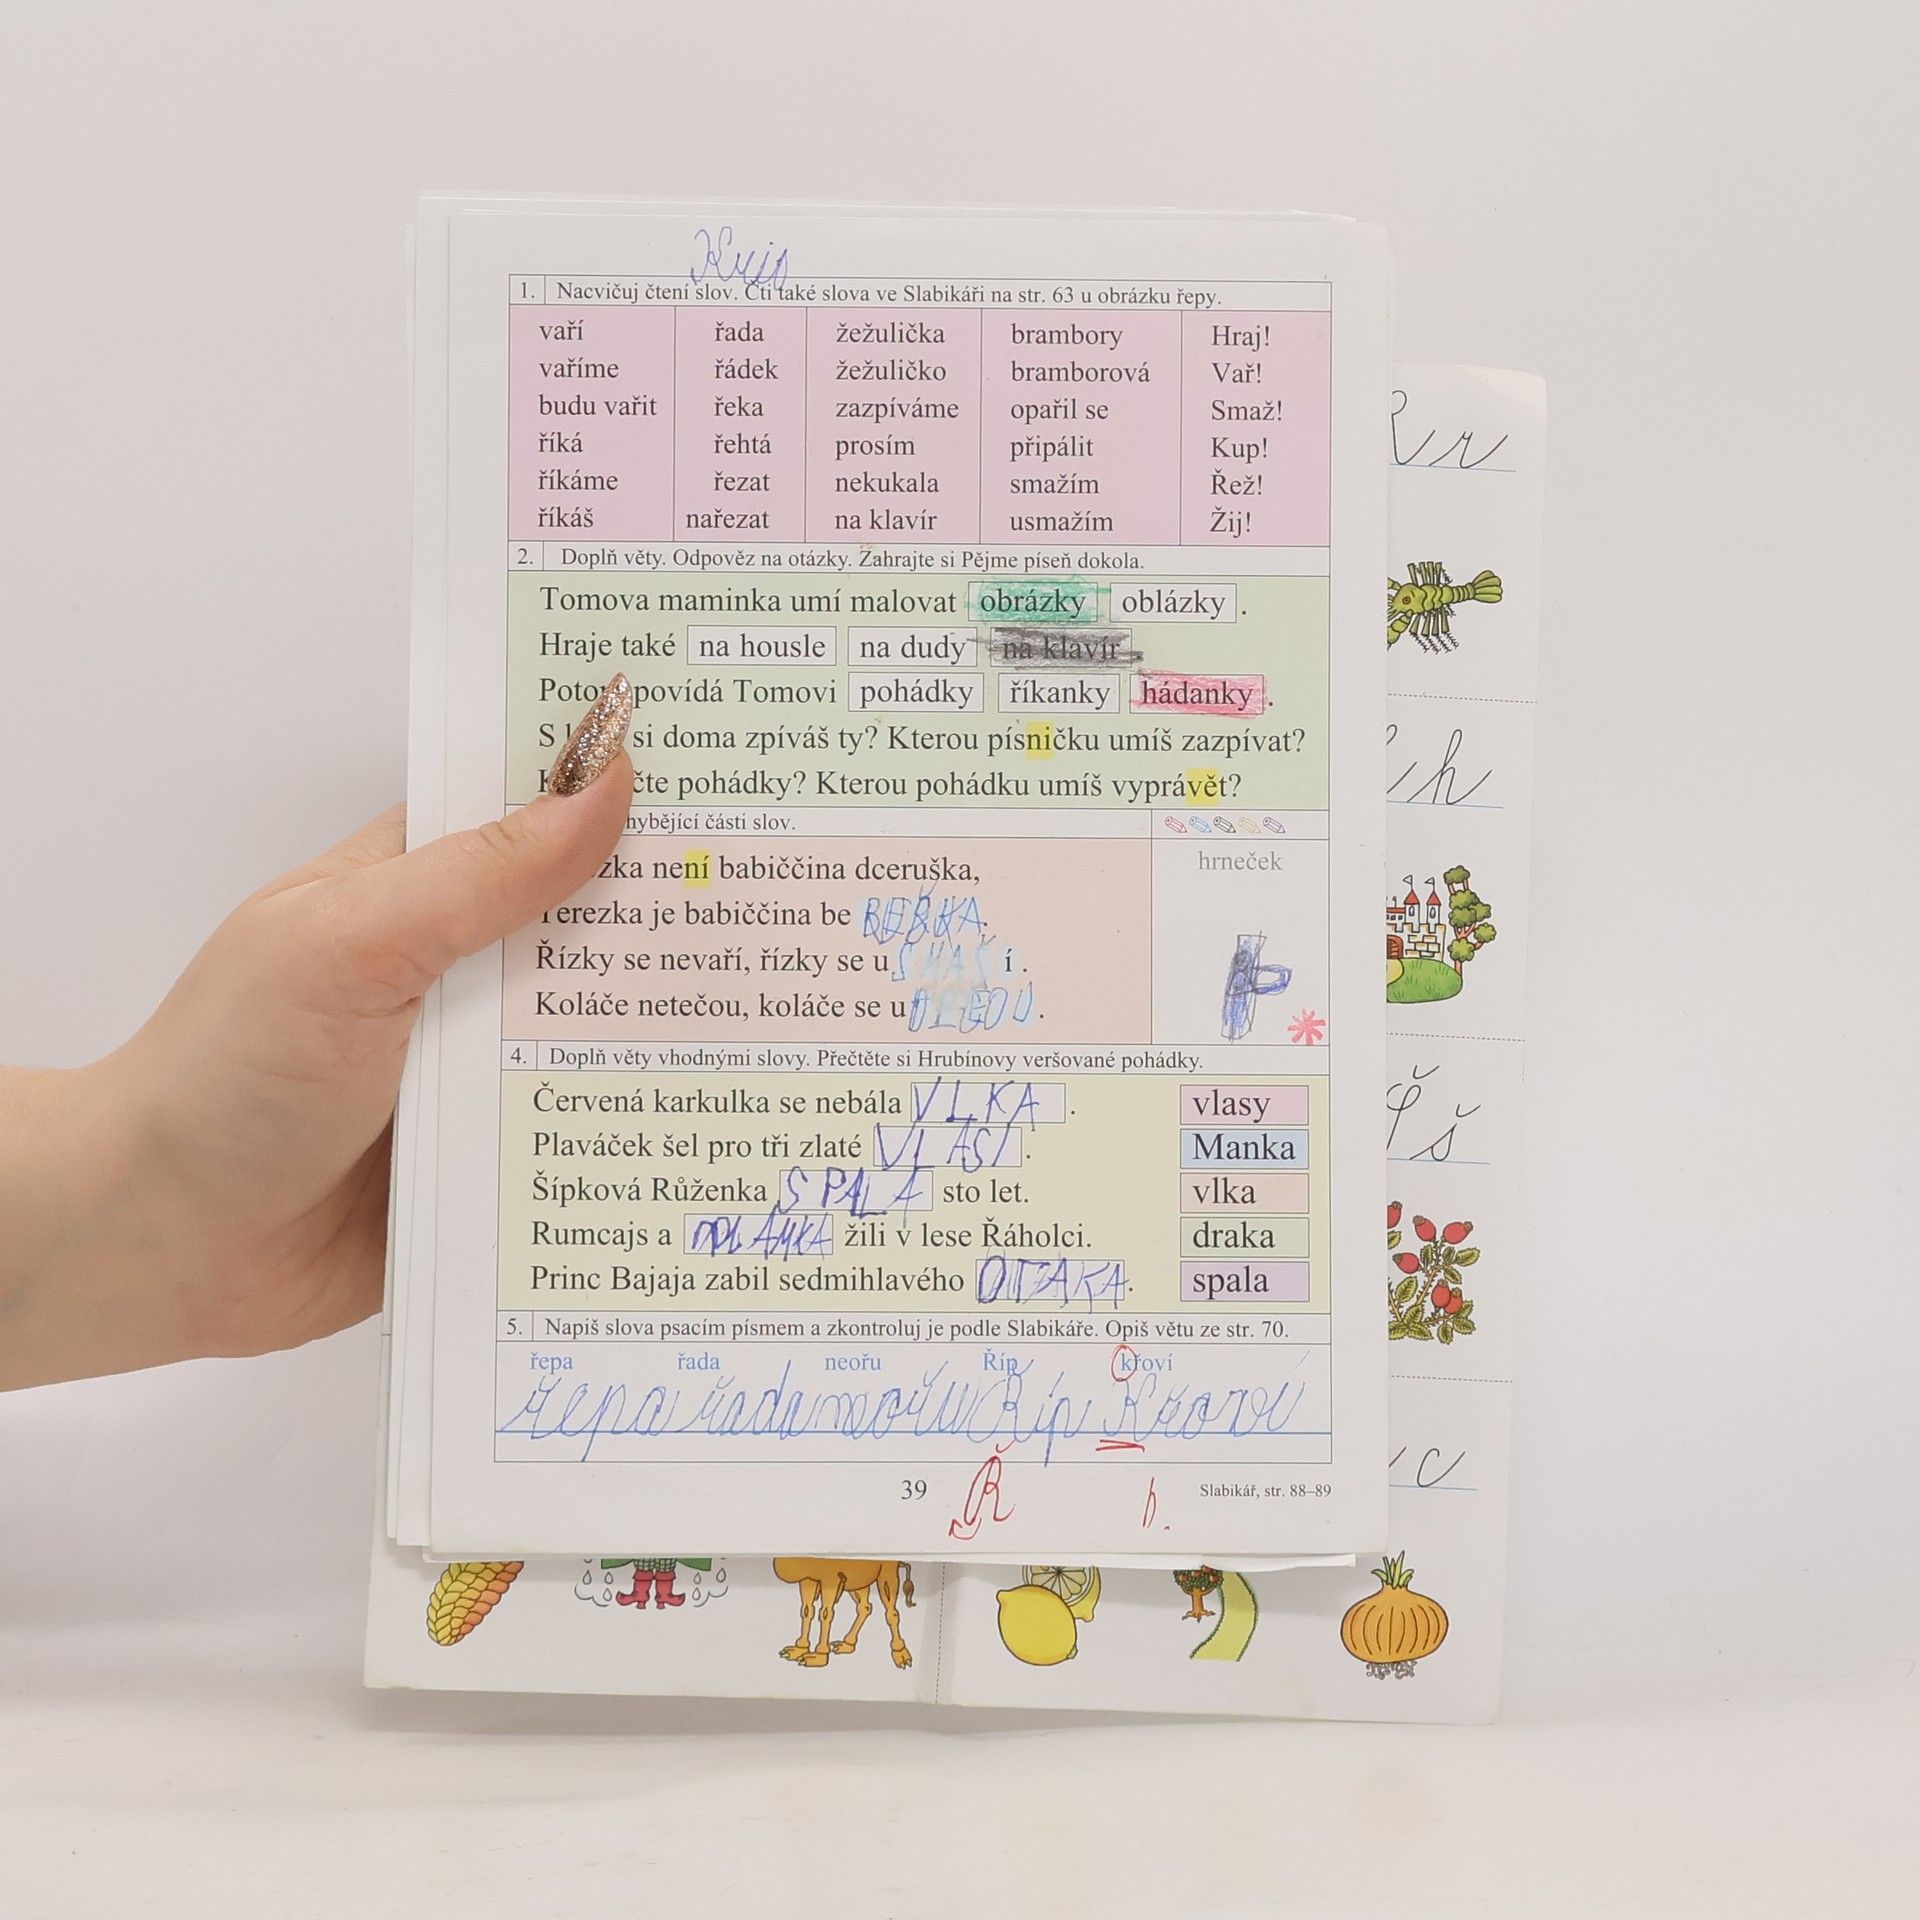 1. Nacvičuj čtení slov. Čti také slova ve Slabikáři na str. 63 u obrázku řepy.
vaří řada žežulička brambory Hraj!
vaříme řádek žežuličko bramborová Vař!
budu vařit řeka zazpíváme opařil se Smaž!
říká řehtá prosím připálit Kup!
říkáme řezat nekukala smažím Řež!
říkáš nařezat na klavír usmažím Žij!
2. Doplň věty. Odpověz na otázky. Zahrajte si Pějme píseň dokola.
Tomova maminka umí malovat obrázky oblázky .
Hraje také na housle na dudy na klavír .
povídá Tomovi pohádky říkanky hádanky .
S si doma zpíváš ty? Kterou písničku umíš zazpívat?
čte pohádky? Kterou pohádku umíš vyprávět?
hybějící části slov.
zka není babiččina dceruška, hrneček
Terezka je babiččina be
Řízky se nevaří, řízky se u í .
Koláče netečou, koláče se u .
4. Doplň věty vhodnými slovy. Přečtěte si Hrubínovy veršované pohádky.
Červená karkulka se nebála VLKA . vlasy
Plaváček šel pro tři zlaté VLASI . Manka
Šípková Růženka SPALA sto let. vlka
Rumcajs a žili v lese Řáholci. draka
Princ Bajaja zabil sedmihlavého . spala
5. Napiš slova psacím písmem a zkontroluj je podle Slabikáře. Opiš větu ze str. 70.
řepa řada neořu Říp křoví
řepa řada neořu Říp Křoví
39 Ř Slabikář, str. 88–89
R r
h
Š š
c